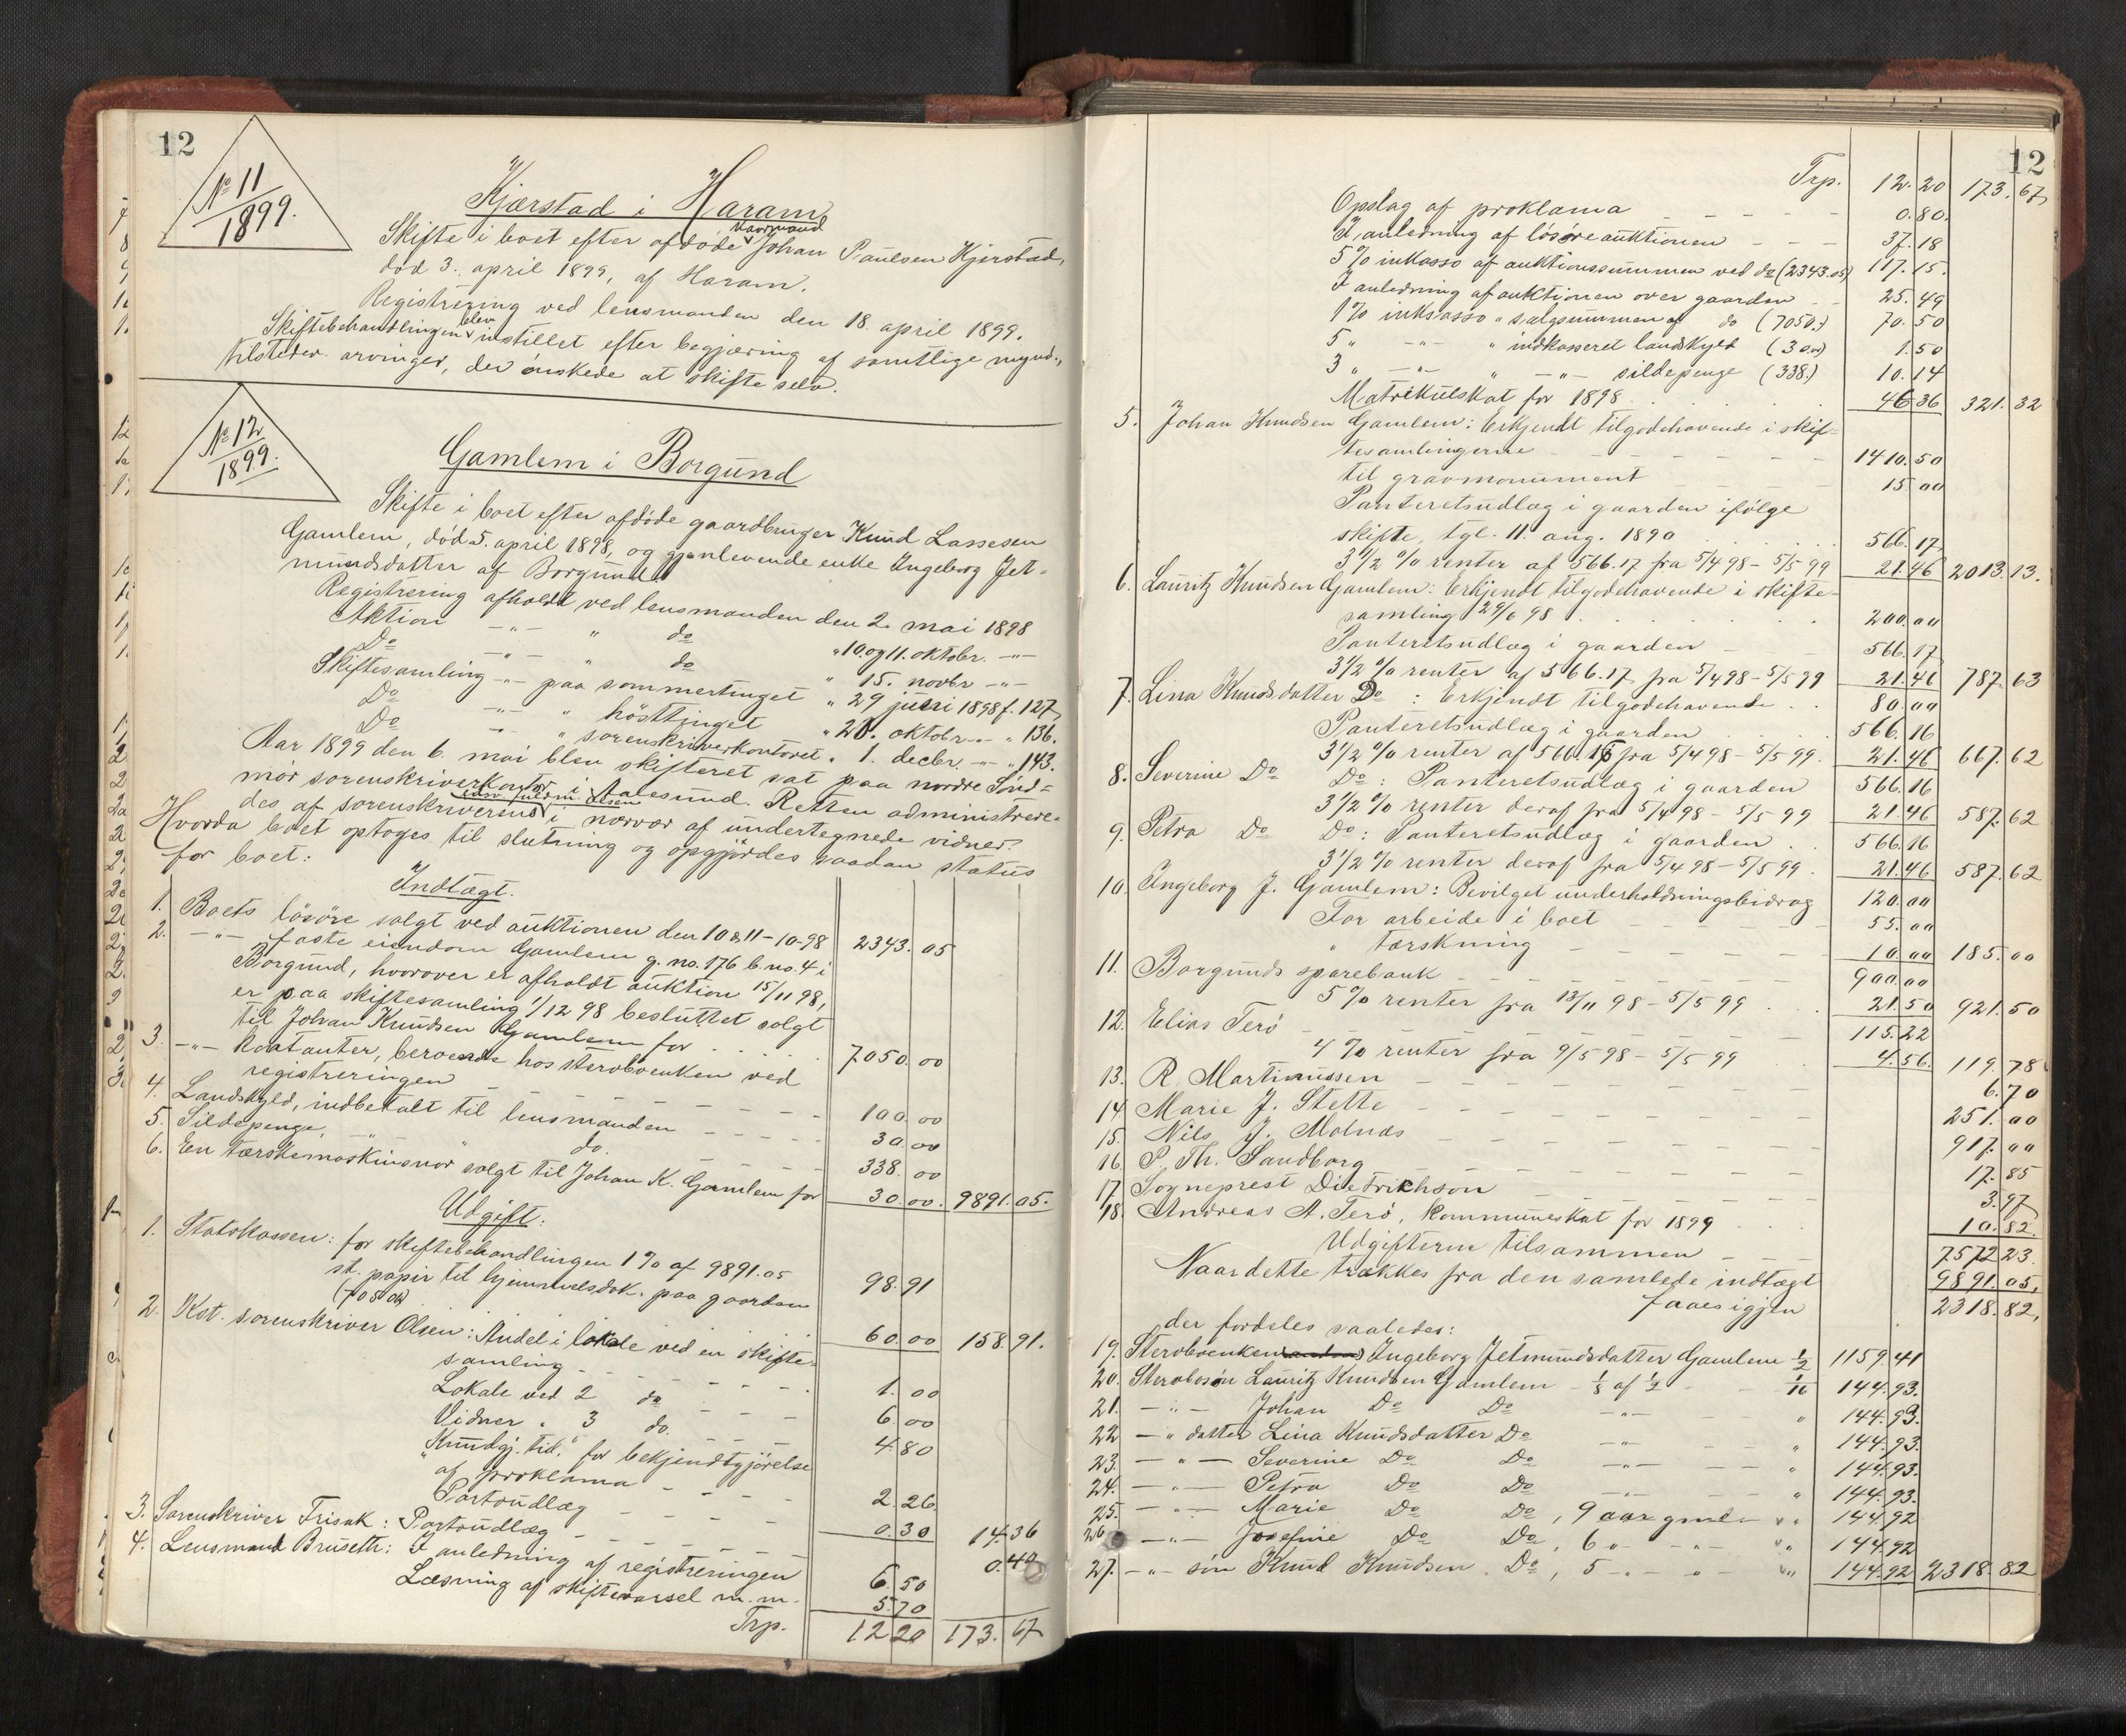 12
No 11
1899.
Kjærstad i Haram.
Skifte i boet efter afdøde Johan Paulsen Kjærstad,
død 3. april 1899, af Haram.
Registrering ved lensmanden den 18. april 1899.
Skiftebehandlingen blev indstillet efter begjæring af samtlige mynd.,
tilsteder. arvinger, der ønskede at skifte selv.
No 12
1899.
Gamlem i Borgund
Skifte i boet efter afdøde gaardbruger Knud Lassesen
Gamlem, død 5. april 1898, og gjenlevende enke Ingeborg Jet-
mundsdatter af Borgund
Registrering afholdt ved lensmanden den 2. mai 1898
Aktion -"- " do " 10. og 11. oktobr. -"-
Do -"- " do " 15. novbr -"-
Skiftesamling -"- paa sommertinget " 29 juni 1898 f. 127,
Do -"- " høsttinget " 20. oktobr. -"- " 136.
Do -"- " sorenskriverkontoret " 1. decbr. -"- " 143.
Aar 1899 den 6. mai blev skifteret sat paa nordre Sønd-
mør sorenskriverkontor i Aalesund. Retten administrere-
des af sorenskriverens edsv. fuldm. Olsen i nærvær af undertegnede vidner.
Hvorda boet optoges til slutning og opgjørdes saadan status
for boet:
Indtægt.
1. Boets løsøre solgt ved auktionen den 10 & 11-10-98 2343.05
2. -"- faste eiendom Gamlem g. no. 176 b. no. 4 i
Borgund, hvorover er afholdt auktion 15/11 98,
er paa skiftesamling 1/12 98 besluttet solgt
til Johan Knudsen Gamlem for . . . 7050.00
3. -"- kontanter, beroende hos stervboenken ved
registreringen - - - - - 100.00
4. Landskyld, indbetalt til lensmanden - - - - 30.00
5. Sildepenge, " " do. - - - - 338.00
6. En tærskemaskinsnor solgt til Johan K. Gamlem for 30.00. 9891.05.
Udgift:
1. Statskassen: for skiftebehandlingen 1 % af 9891.05 98.91
st. papir til hjemmelsdok. paa gaarden
(7050) 60.00 158.91.
2. Kst. sorenskriver Olsen: Andel i lokale ved en skifte-
samling - - - - - 1.00
Lokale ved 2 do - - - 6.00
Vidner " 3 do. - - - 4.80
"Kundgj. tid." for bekjendtgjørelse
af proklama - - - - 2.26
Portoudlæg - - - - 0.30 14.36
3. Sorenskriver Frisak: Portoudlæg - - - - 0.40
4. Lensmand Bruseth: I anledning af registreringen 6.50
Læsning af skiftevarsel m.m. 5.70
Trp. 12.20 173.67
12
Trp. 12.20 173.67
Opslag af proklama - - - - - 0.80.
I anledning af løsøreauktionen - - - 37.18
5 % inkasso af auktionssummen ved do (2343.05) 117.15.
I anledning af auktionen over gaarden - - 25.49
1 % inkasso " salgsummen af do (7050.) 70.50
5 " -"- " indkasseret landskyld (30.00) 1.50
3 " -"- " -"- sildepenge (338.) 10.14
Matrikulskat for 1898 . . . . 46.36 321.32
5. Johan Knudsen Gamlem: Erkjendt tilgodehavende i skif-
tesamlingerne - - - - - - 1410.50
til gravmonument - - - - 15.00
Panteretsudlæg i gaarden ifølge
skifte, tgl. 11. aug. 1890 . . . . . 566.17
3 1/2 % renter af 566.17 fra 5/4 98 - 5/5 99 21.46 2013.13.
6. Lauritz Knudsen Gamlem: Erkjendt tilgodehavende i skifte-
samling 29/6 98 . . . . . . 200.00
Panteretsudlæg i gaarden - - - 566.17
3 1/2 % renter af 566.17 fra 5/4 98 - 5/5 99 21.46 787.63
7. Lina Knudsdatter Do : Erkjendt tilgodehavende . . 80.00
Panteretsudlæg i gaarden . . . . 566.16
3 1/2 % renter af 566.16 fra 5/4 98 - 5/5 99. 21.46 667.62
8. Severine Do Do : Panteretsudlæg i gaarden 566.16
3 1/2 % renter deraf fra 5/4 98 - 5/5 99 21.46 587.62
9. Petra Do Do : Panteretsudlæg i gaarden . . 566.16
3 1/2 % renter deraf fra 5/4 98 - 5/5 99 . 21.46 587.62
10. Ingeborg J. Gamlem: Bevilget underholdningsbidrag 120.00
For arbeide i boet - - - - - 55.00
" tærskning - - - - - 10.00 185.00
11. Borgunds sparebank - - - - - - 900.00
5 % renter fra 13/11 98 - 5/5 99 . . . 21.50 921.50
12. Elias Terø - - - - - - 115.22
4 % renter fra 9/5 98 - 5/5 99 . . . 4.56. 119.78
13. R. Martinussen - - - - - - 6.70
14. Marie J. Stette - - - - - - 251.00
15. Nils J. Molnæs - - - - - - 917.00
16. P. Th. Sandborg - - - - - - 17.85
17. Sogneprest Dietrichson - - - - - 3.97
18. Andreas A. Terø, kommuneskat for 1899 . . . 10.82.
Udgifterne tilsammen - - - 7572.23.
Naar dette trækkes fra den samlede indtægt 9891.05,
faaes igjen 2318.82,
der fordeles saaledes:
19. Stervboenken Ingeborg Jetmundsdatter Gamlem 1/2 1159.41
20. Stervbosøn Lauritz Knudsen Gamlem - 1/8 af 1/2 - - 1/16 144.93.
21. -"- Johan Do Do -"- - - " 144.93.
22 -"- datter Lina Knudsdatter Do -"- - - " 144.93.
23. -"- Severine Do Do -"- - - " 144.93.
24. -"- Petra Do Do -"- - - " 144.93.
25. -"- Marie Do Do, 9 aar gml. - " " 144.92
26. -"- Josefine Do Do, 6 " - -"- " " 144.92
27. -"- søn Knud Knudsen Do, 5 -"- " - " " 144.92 2318.82